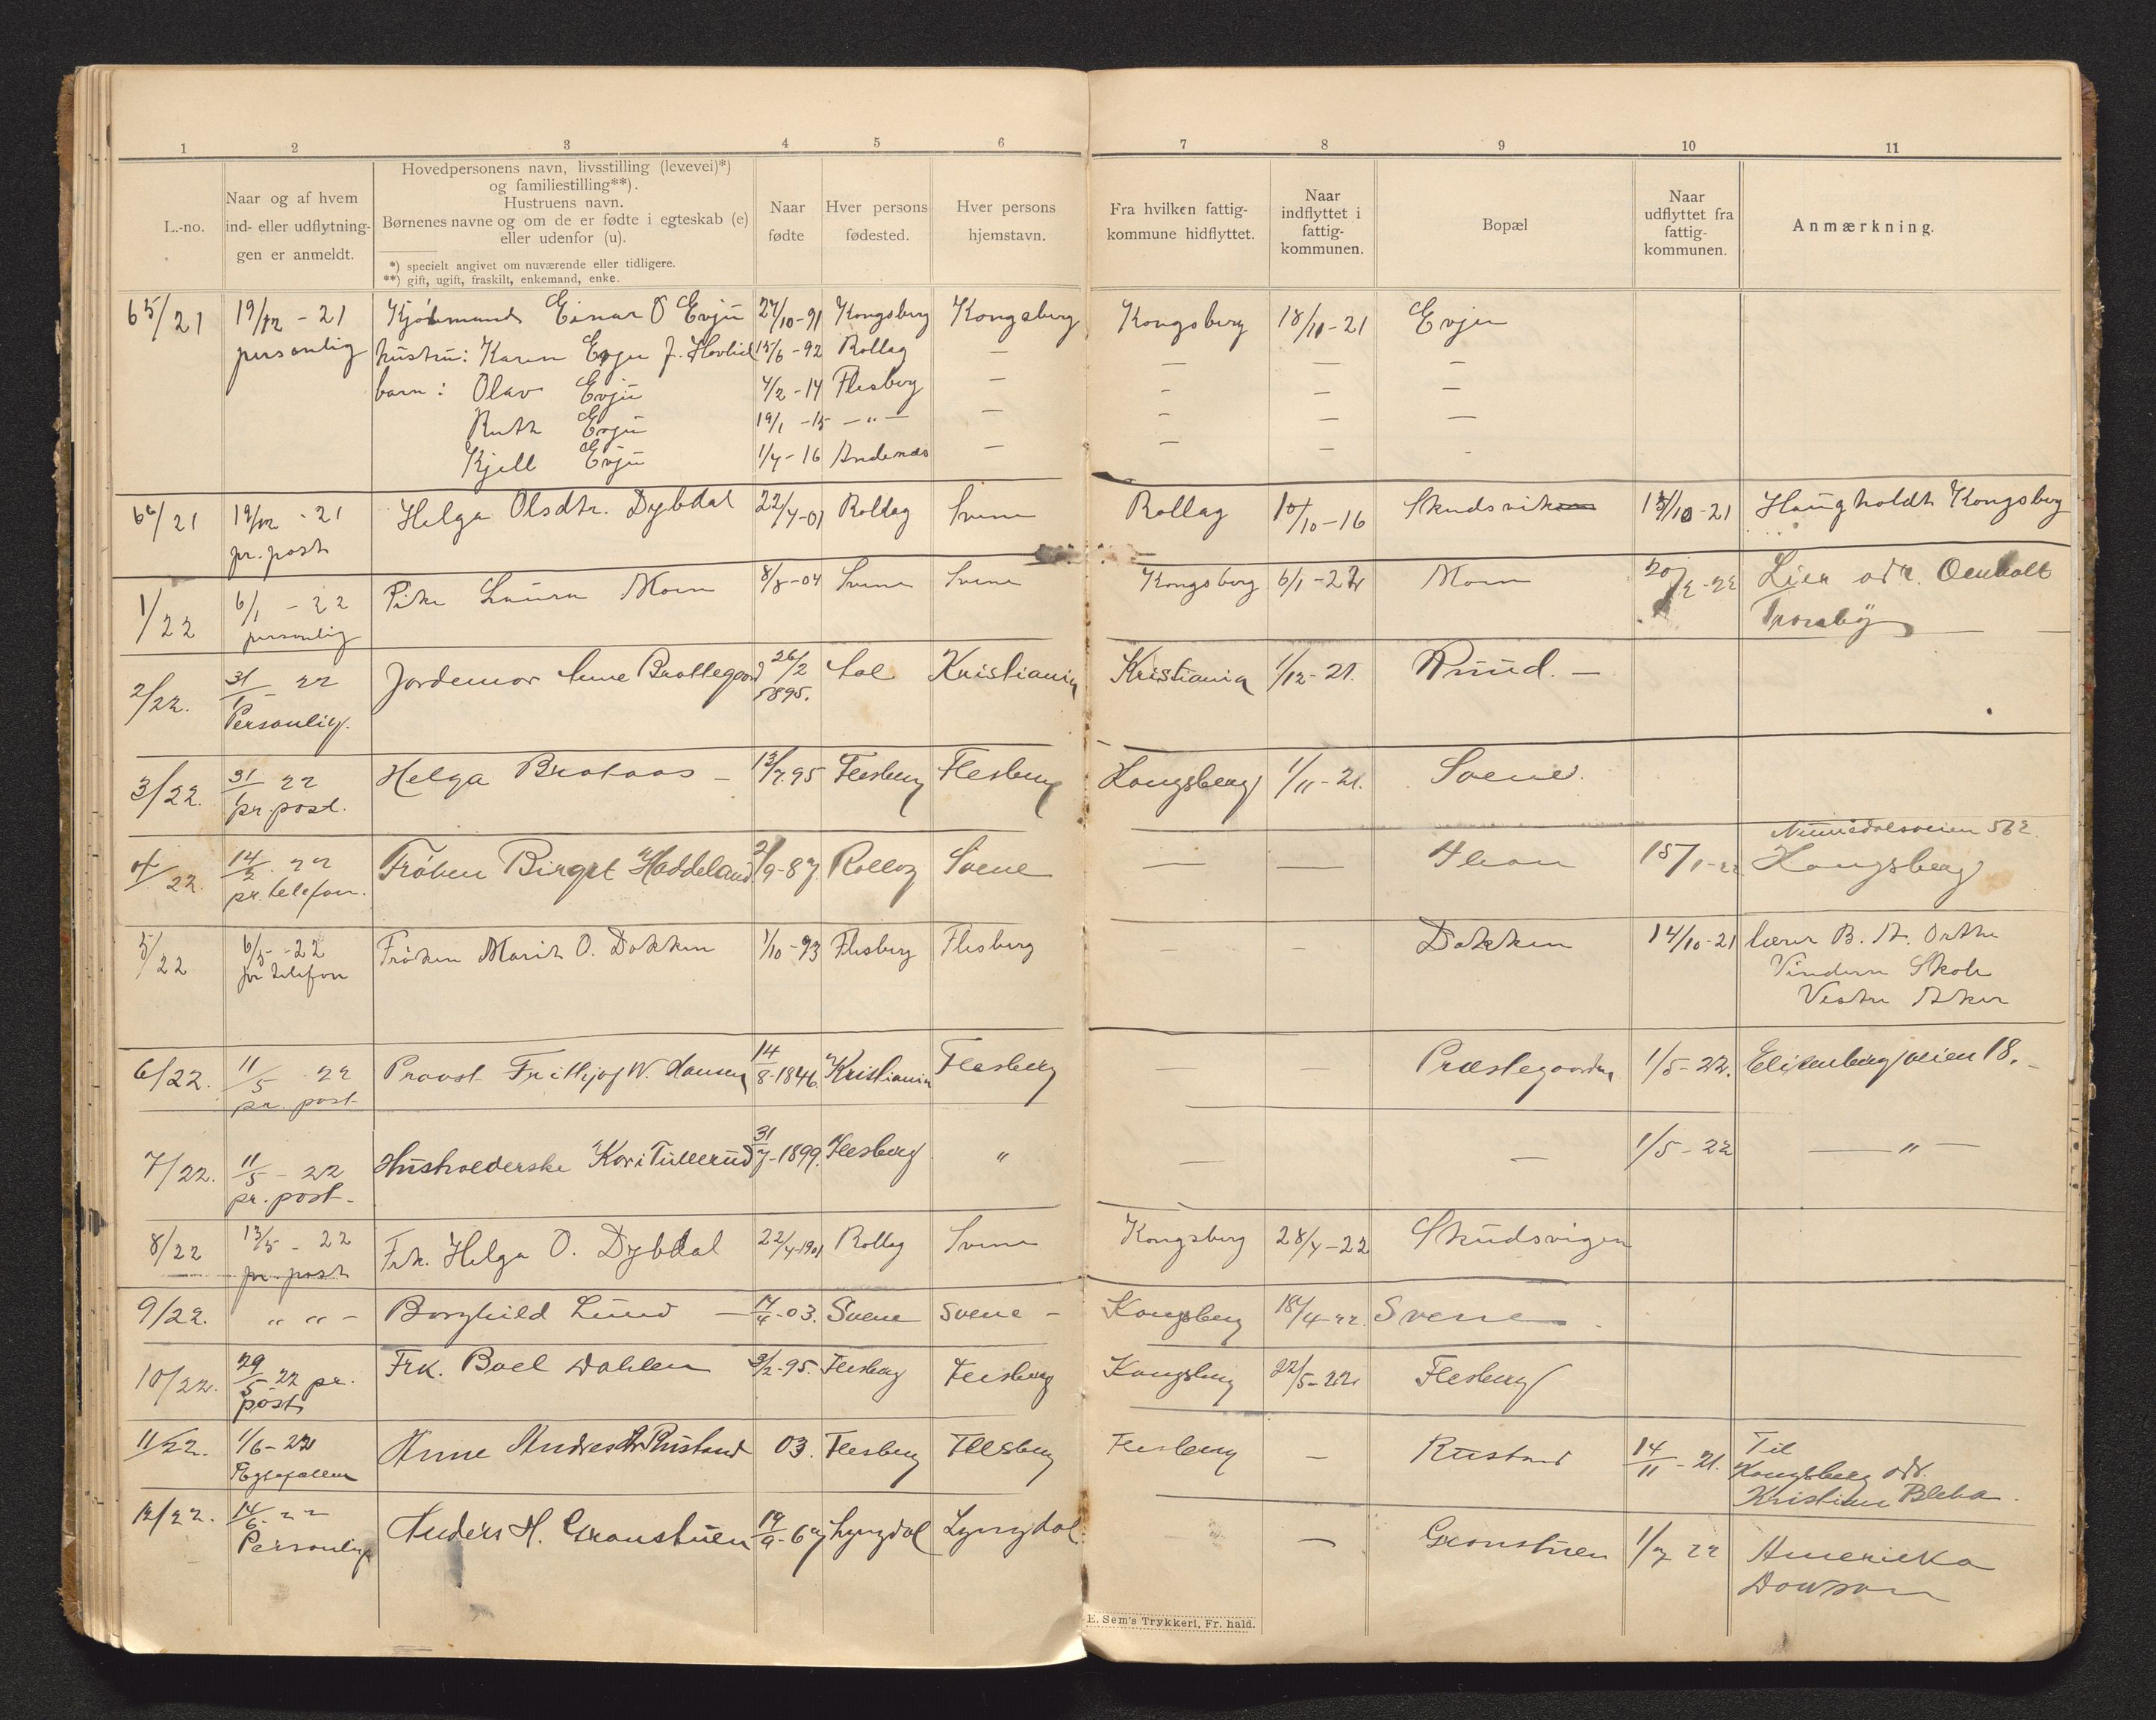 1 2 3 4 5 6 7 8 9 10 11
L.-no.
Naar og af hvem
ind- eller udflytnin-
gen er anmeldt.
Hovedpersonens navn, livsstilling (levevei)*)
og familiestilling**).
Hustruens navn.
Børnenes navne og om de er fødte i egteskab (e)
eller udenfor (u).
*) specielt angivet om nuværende eller tidligere.
**) gift, ugift, fraskilt, enkemand, enke.
Naar
fødte
Hver persons
fødested.
Hver persons
hjemstavn.
Fra hvilken fattig-
kommune hidflyttet.
Naar
indflyttet i
fattig-
kommunen.
Bopæl
Naar
udflyttet fra
fattig-
kommunen.
Anmærkning.
65/21 19/12 - 21 Kjøbmand Einar O Evju 27/10-91 Kongsberg Kongsberg Kongsberg 18/11-21 Evju
personlig hustru: Karen Evju f. Hovlid 15/6-92 Rollag — — — —
barn: Olav Evju 4/2-14 Flesberg — - — —
Ruth Evju 19/1-15 — " — — - — —
Kjell Evju 1/4-16 Andenæs — — — -
66/21 19/12 - 21 Helga Olsdtr. Dybdal 22/4-01 Rollag Svene Rollag 10/10-16 Skudsvik 13/10-21 Haugholdt Kongsberg
pr. post
1/22 6/1 - 22 Pike Laura Moen 8/8-04 Svene Svene Kongsberg 6/1-22 Moen 20/2-22 Lier adr.
personlig
2/22. 31/1 - 22 Jordemor Anne Brattegaard 26/2 1895. Aal Kristiania Kristiania 1/12-21. Ruud. —
Personlig.
3/22. 31/1 22 Helga Brataas — 13/7.95 Flesberg Flesberg Kongsberg 1/11-21. Svene.
pr. post.
Numedalsveien 562
4/22. 14/2 22 Frøken Birgit Haddeland 21/9-87. Rollag Svene — — 15/1-22 Kongsberg
pr. telefon.
5/22 6/5 - 22 Frøken Marit O. Dokken 1/10-93 Flesberg Flesberg — - Dokken 14/10-21 lærer B. A. Orthe
pr telefon Vindern Skole
Vestre Aker
6/22. 11/5 22 Provst Frithjof W. Hansen 14/8-1846. Kristiania Flesberg — — Præstegaarden 1/5-22. Elisenbergveien 18.-
pr. post
7/22. 11/5 - 22 Husholderske Kari Tullerud 31/7-1899. Flesberg " — — 1/5-22 — " —
pr. post -
8/22 13/5 - 22 Frk. Helga O. Dybdal 22/4-1901 Rollag Svene Kongsberg 28/4-22 Skudsvigen
pr. post
9/22. " " - Borghild Lund — 17/4-03. Svene Svene - Kongsberg 18/4-22 Svene
10/22. 29/5-22 pr. Frk. Boel Dahlen 3/2-95. Flesberg Flesberg Kongsberg 22/5-22 Flesberg
post
11/22. 1/6-22 Anne Andresdtr Rustand 03. Flesberg Flesberg Flesberg — Rustand 14/11-21. Til
Kongsberg adr.
Kristian Bleka.
12/22. 14/6-22 Anders H. Granstuen 19/9-67 Lyngdal Lyngdal. — Granstuen 1/7 22 Amerieka
Personlig Dawson
E. Sem's Trykkeri, Fr. hald.